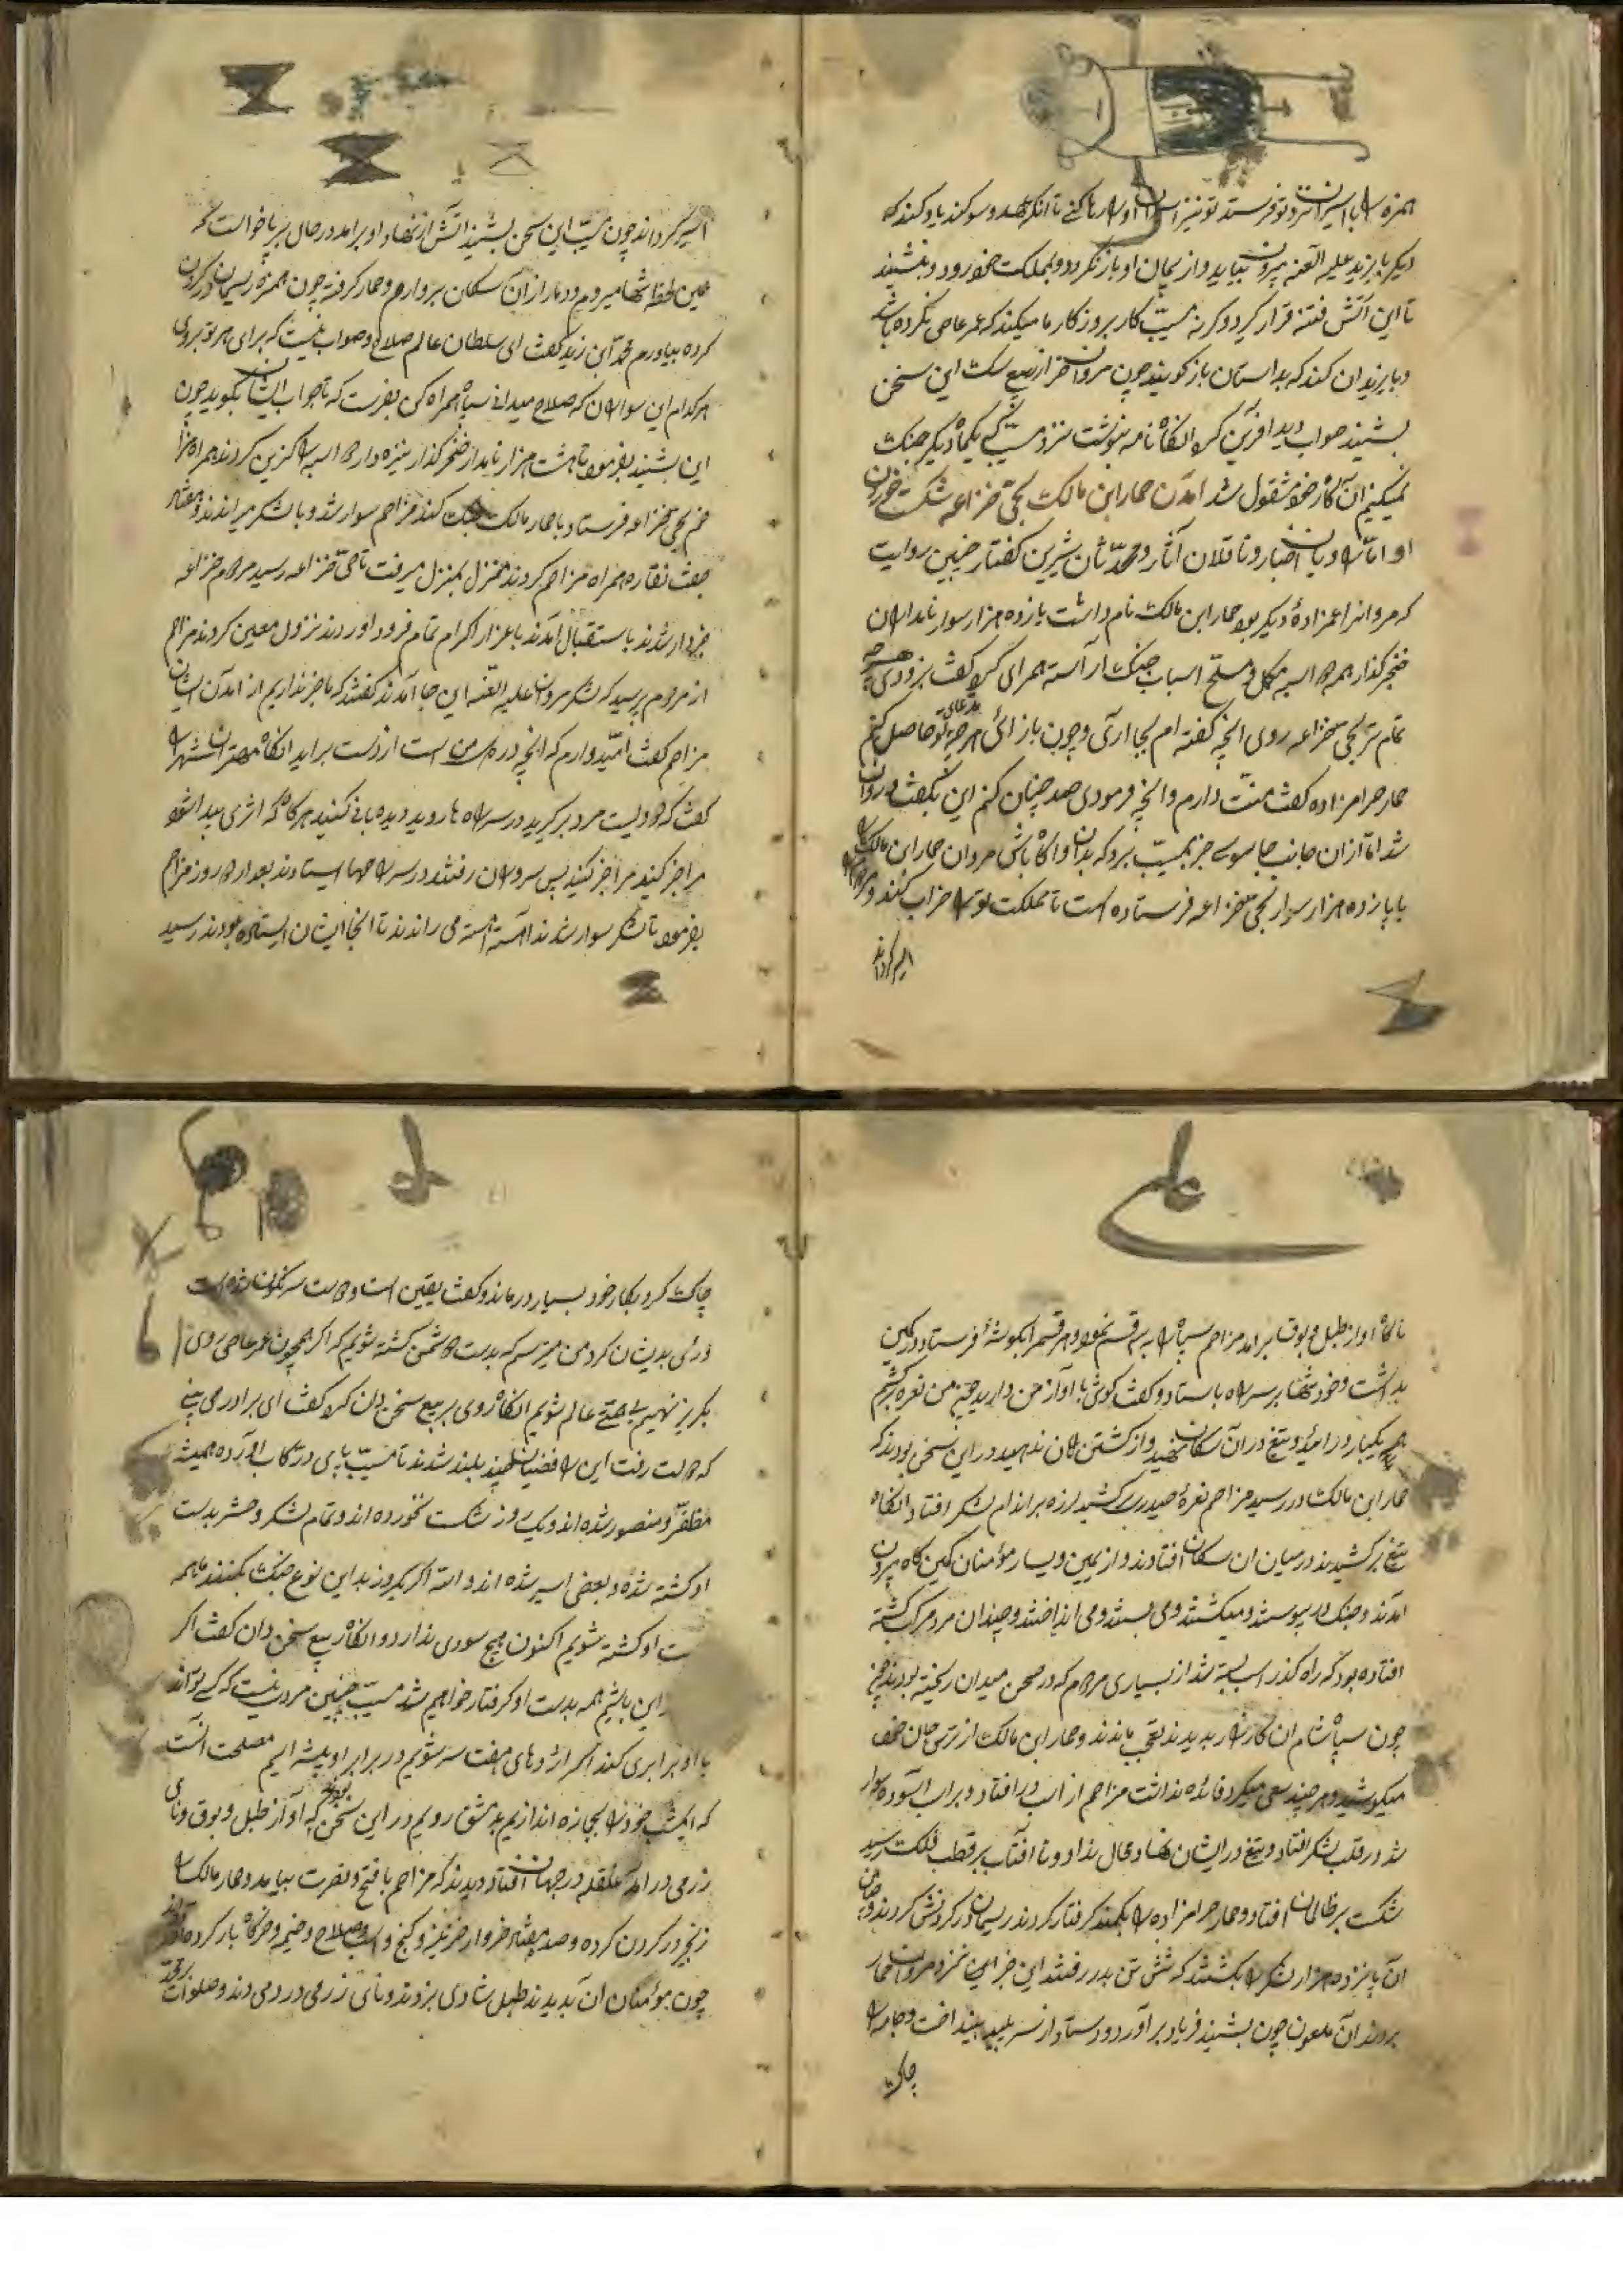 همزه را با اسیران نزد تو فرستد تو نیز اسیران او را رها کنی تا آنکه عهد و سوکند یاد کند که
دیکر با یزید علیه العنه بیرون نیاید و از پیمان او باز نکردد و بمملکت خود رود و بنشیند
تا این آتش فتنه قرار کیرد و کرنه مسیّب کار بروزکار ما میکند که عمر عاصی نکرده باشد
و با یزید آن کند که بداستان باز کویند چون مروان خر از ربیع سک این سخن
بشنید صواب دید آفرین کرد آنکاه نامه بنوشت نزد مسیّب که یکماه دیکر جنک
نمیکنیم آنکاه خود مشغول شد آمدن حمار ابن مالک بحی خزاعه شکست خوردن
او امّا راویان اخبار و ناقلان آثار و محدّثان شیرین کفتار چنین روایت
که مروانرا عمزادهٔ دیکر بود حمار ابن مالک نام داشت پازده هزار سوار نامدار
خنجر کذار همه را اسپه مکمل و مسلّح اسباب جنک آراسته همرای کرد کفت بزودی هر چه
تمام تر بحی خزاعه روی آنچه کفته ام بجا آری و چون باز آئی هر چه مدعای تو حاصل کنم
حمار حرامزاده کفت منّت دارم و آنچه فرمودی صد چنان کنم این بکفت و روان
شد امّا از آن جانب جاسوسے خبر بمسیّب برد که بدان و آکاه باش مروان حمار ابن مالک را
با پازده هزار سوار بحی خزاعه فرستاده است تا مملکت تو را خراب کند و
اسیر کرداند
اسیر کرداند چون مسیّب این سخن بشنید آتش از نهاد او برآمد در حال برپا خواست که
همین لحظه تنها میروم و دمار از آن سکان بر دارم و حمار کرفته چون همزه ریسمان در کردن
کرده بیاورم محمد ابن زید کفت ای سلطان عالم صلاح و صواب نیست که برای هر تو بروی
هر کدام این سرداران که صلاح میدانی سپاه همراه کن بفرست که تا جواب ایشان بکوید چون
این بشنید بفرمود تا هشت هزار نامدار خنجر کذار نیزه دار را اسپه را کزین کردند همراه مزا
حم بحی خزاعه فرستاد با حمار مالک جنک کند مزاحم سوار شد و با لشکر میراندند و هفتاد
جفت نقاره همراه مزاحم کردند منزل بمنزل میرفت تا بحی خزاعه رسید مردم خزاعه
خبردار شدند باستقبال آمدند با عزاز اکرام تمام فرود آوردند نزول معین کردند مزاحم
از مردم پرسید که لشکر مروان علیه العنه این جا آمدند کفتند که ما خبر نداریم از آمدن ایشان
مزاحم کفت امّیدوارم که آنچه در دل من است از دست براید آنکاه مهتران شهر را
کفت که دویست مرد بر کیرید در سر راه ها روید دیده بانی کنید هر کاه که اثری پیدا شود
مرا خبر کنید مرا خبر کنید پس سروران رفتند در سر راهها ایستادند بعد از دو روز مزاحم
بفرمود تا لشکر سوار شدند آهسته آهسته می راندند تا آنجا ایشان ایستاده بودند رسید
ناکاه آواز طبل و بوق برآمد مزاحم سپاه را به سه قسم نمود و هر قسمرا بکوشهٔ فرستاد در کمین
بداشت و خود تنها بر سر راه باستاد و کفت کوش با آواز من دارید چون من نعره برکشم
همه یکبار درآئید و تیغ در آن سکان نهید و از کشتن امان ندهید در این سخن بودند که
حمار ابن مالک در رسید مزاحم نعرهٔ حیدری کشید لرزه بر اندام لشکر افتاد آنکاه
تیغ برکشیدند در میان آن سکان افتادند و از یمین و یسار مؤمنان کمین کاه بیرون
آمدند و جنک در پیوستند و میکشتند و می بستند و می انداختند و چندان مرد مرکب کشته
افتاده بود که راه کذر اسپ بسته شد از بسیاری مردم که در صحن میدان ریخته بودند
چون سپاه شام آن کارزار بدیدند تعجّب ماندند و حمار ابن مالک از ترس جان خود
میکوشید و هر چند سعی میکرد فائده نداشت مزاحم از اسب در افتاد و بر اسب آسوده سوار
شد در قلب لشکر افتاد و تیغ در ایشان نهاد و مجال نداد و تا آفتاب بر قطب فلک رسید
شکست بر ظالمان افتاد و حمار حرامزاده را بکمند کرفتار کردند ریسمان در کردنش کردند و
آن پانزده هزار لشکر را بکشتند که شش تن بدر رفتند این خبر را نزد مروان حمار
بردند آن ملعون چون بشنید فریاد بر آورد و دستار از سر پلید بینداخت و جامه را
چاک
چاک کرد بکار خود بسیار درماند و کفت یقین است دولت سرنکون شده است
در پی بدیشان کرد من میترسم که بدست دشمن کشته شویم که اکر همچون عمر عاصی روی
بکریز نهیم فضیحت عالم شویم آنکاه روی بربیع سخن دان کرد کفت ای برادر می بینی
که دولت رفت این رافضیان بلند شدند تا مسیّب پای در رکاب آورده همیشه
مظفّر و منصور شده اند و یک روز شکست نخورده اند و تمام لشکر و حشر بدست
او کشته شده و بعضی اسیر شده اند و اسه اکر یکروز بداین نوع جنک بکنند ما همه
ست او کشته شویم اکنون هیچ سودی ندارد و آنکاه ربیع سخن دان کفت اکر
این باشیم همه بدست او کرفتار خواهیم شد مسیّب چنین مردی نیست که کسے تواند
با او برابری کند اکر اژدهای هفت سر شویم در برابر او پشه ایم مصلحت آنست
که امشب خود را بجازه اندازیم بدمشق رویم در این سخن بودند که آواز طبل و بوق و نای
زرمی در آمد غلغله در جهان افتاد دیدند که مزاحم با فتح و نصرت بیامد و حمار مالک را
زنجیر در کردن کرده و صد هفتاد خروار خزینه و کنج و اسب و صلاح و خیمه و خرکاه بار کرده
چون مؤمنان آن بدیدند طبل شادی بزدند و نای زرمی در دمیدند و صلوات بر محمّد
علی